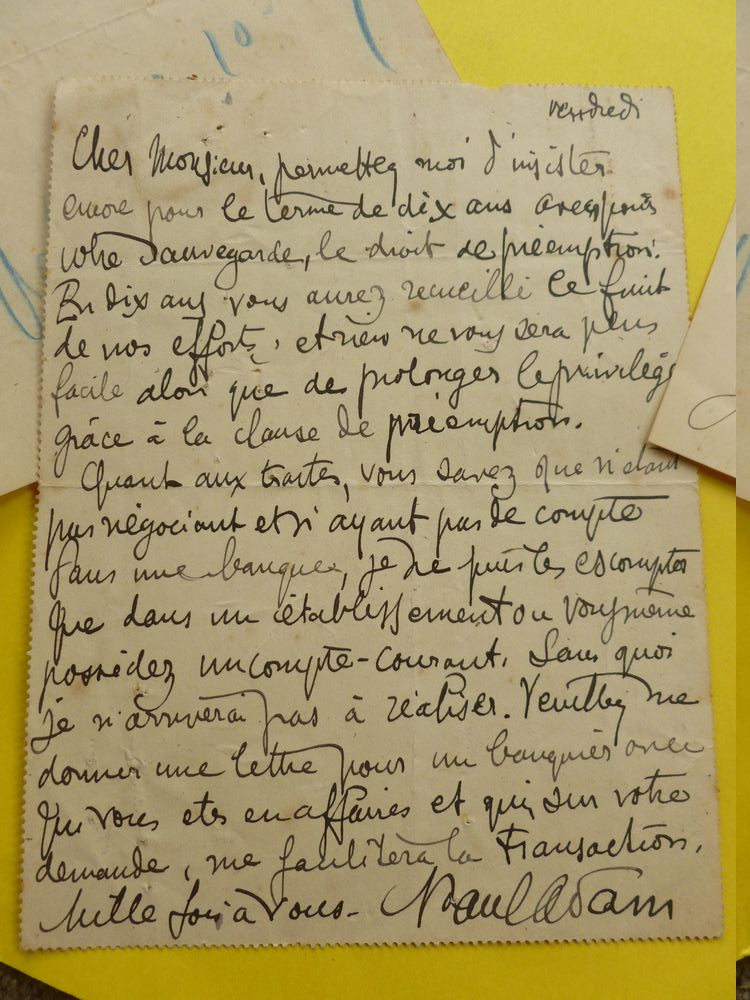 vendredi
Cher Monsieur, permettez moi d'insister
encore pour le terme de dix ans avec, pour
votre sauvegarde, le droit de préemption.
En dix ans vous aurez recueilli le fruit
de nos efforts, et rien ne vous sera plus
facile alors que de prolonger le privilège
grâce à la clause de préemption.
Quant aux traites, vous savez que n'étant
pas négociant et n'ayant pas de compte
dans une banque, je ne puis les escompter
que dans un établissement ou vous même
possédez un compte-courant. Sans quoi
je n'arriverai pas à réaliser. Veuillez me
donner une lettre pour un banquier avec
qui vous etes en affaires et qui, sur votre
demande, me facilitera la transaction.
Mille fois à vous - Paul Adam